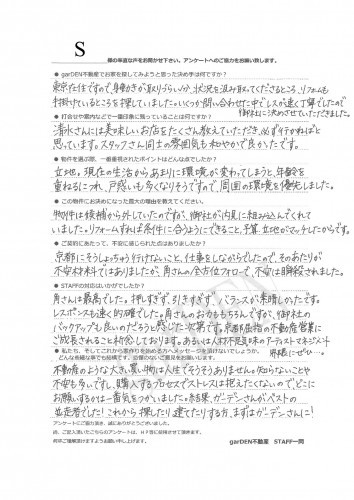 S
様の率直な声をお聞かせ下さい。アンケートへのご協力をお願い致します。
● garDEN不動産でお家を探してみようと思った決め手は何ですか?
東京在住ですので、身動きが取りづらい分、状況を汲み取ってくださるところ、リフォームも
手掛けているところを探していました。いくつか問い合わせた中でレスが速く丁寧でしたので
御社に決めさせていただきました。
● 打合せや案内などで一番印象に残っていることは何ですか?
清水さんには美味しいお店をたくさん教えていただき、必ず行かねばと
思っています。スタッフさん同士の雰囲気も和やかで良かったです。
● 物件を選ぶ際、一番重視されたポイントはどんな点でしたか?
立地。現在の生活からあまりに環境が変わってしまうと、年齢を
重ねるにつれ、戸惑いも多くなりそうですので、周囲の環境を優先しました。
● この物件にお決めになった最大の理由を教えてください。
物件は候補から外していたのですが、御社が内見に組み込んでくれて
いました。リフォームすれば条件に合うようにできること、予算、立地がマッチしたからです。
● ご契約にあたって、不安に感じられた点はありましたか?
京都にそうしょっちゅう行けないこと、仕事をしながらでしたので、そのあたりが
不安材料ではありましたが、角さんの全方位フォローで、不安は瞬殺されました。
● STAFFの対応はいかがでしたか?
角さんは最高でした。押しすぎず、引きすぎず、バランスが素晴しかったです。
レスポンスも速く的確でした。角さんのお力ももちろんですが、御社の
バックアップも良いのだろうと感じた次第です。京都屈指の不動産営業に
ご成長されること祈念しております。あるいは人材不足気味のアーティストマネジメント
界隈にぜひ…。
● 私たち、そしてこれから家作りを始める方へメッセージを頂けないでしょうか。
どんな些細な事でも結構です。お客様のないご意見をお願いします。
不動産のような大きい買い物は人生でそうそうありません。知らないことや
不安も多いですし、購入するプロセスでストレスは抱えたくないのでどこに
お願いするかは一番気をつかいました。結果、ガーデンさんがベストの
並走者でした!これから探したり建てたりする方、まずはガーデンさんに!
アンケートにご協力頂き、誠にありがとうございました。
尚、ご記入頂いたこちらのアンケートは、HP等に反映させて頂きます。
何卒ご理解頂けますようお願い申し上げます。
garDEN不動産 STAFF一同